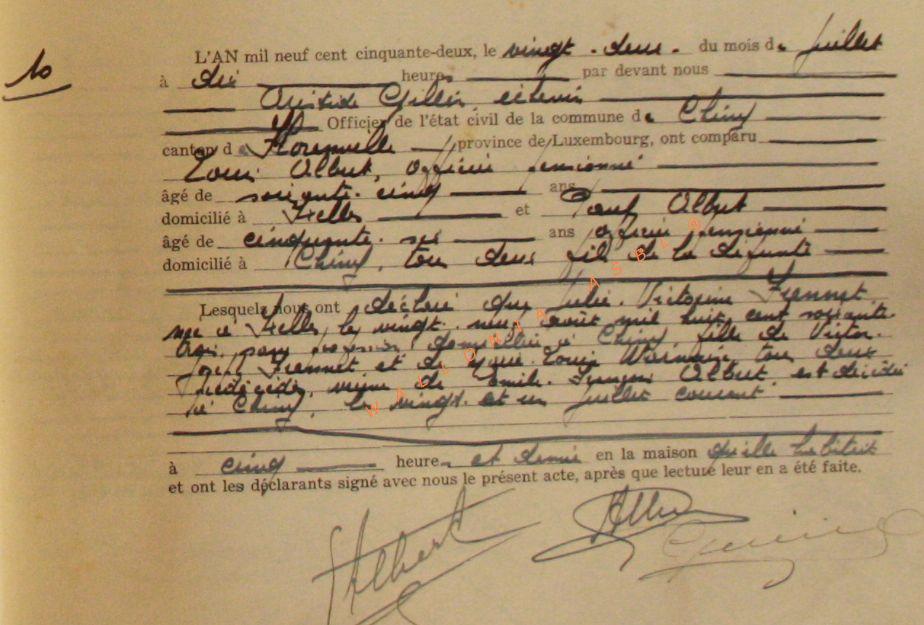 10
L'AN mil neuf cent cinquante-deux, le vingt-deux du mois de juillet
à dix heures par devant nous
Aristide Gillin, échevin
Officier de l'état civil de la commune de Chiny
canton de Florenville province de Luxembourg, ont comparu
Louis Albert, officier pensionné
âgé de soixante-cinq ans
domicilié à Ixelles et Albert
âgé de cinquante-six ans officier pensionné
domicilié à Chiny, tous deux fils de la défunte
Lesquels nous ont déclaré que Julie-Victorine
née à Ixelles, le vingt-neuf août mil huit cent soixante
trois, sans profession, domiciliée à Chiny, fille de Victor-
Joseph et de tous deux
prédécédés, veuve de Emile-François Albert, est décédée
à Chiny, le vingt et un juillet courant
à cinq heures et demie en la maison qu'elle habitait
et ont les déclarants signé avec nous le présent acte, après que lecture leur en a été faite.
Albert
WALLONIA ASBL ©